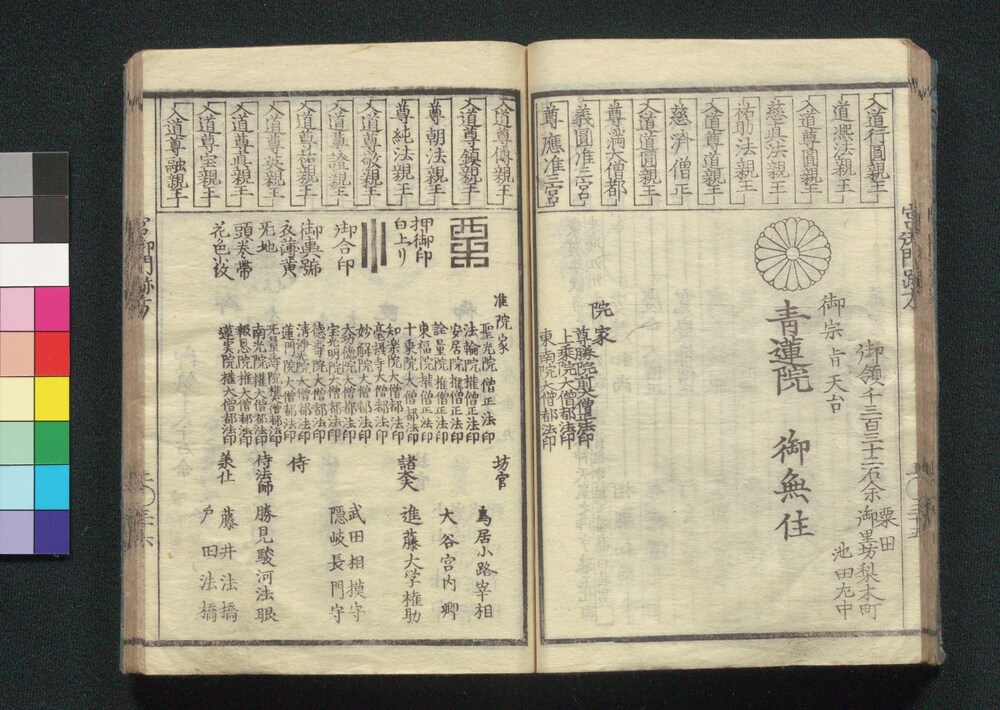 入道行圓親王
道熈法親王
入道尊圓親王
慈真法親王
祐助法親王
入道尊道親王
慈濟僧正
入道道圓親王
尊満大僧都
義圓准三宮
尊應准三宮
御領千三百三十二石余
粟田
御里坊梨木町
池田九中
御宗旨天台
青蓮院 御無住
院家
尊勝院前大僧正法印
上乗院大僧都法印
東南院大僧都法印
入道尊傳親王
入道尊鎮親王
尊朝法親王
尊純法親王
入道尊敬親王
入道尊證親王
入道尊祐親王
入道尊英親王
入道尊真親王
入道尊宝親王
入道尊融親王
押御印
白上り
御合印
御輿號
衣薄黄
牙地
頭巻帯
花色小紋
准院家
聖光院僧正法印
法輪院権僧正法印
安居院権僧正法印
詮量院権僧正法印
東福院権僧正法印
十乗院大僧都法印
知楽院大僧都法印
妙解院大僧都法印
大僧都法印
定光明院大僧都法印
徳寺院大僧都法印
清浄光院大僧都法印
蓮門院大僧都法印
無量寺院権大僧都法印
南光院権大僧都法印
報恩院権大僧都法印
蓮実院権大僧都法印
坊官
鳥居小路宰相
大谷宮内卿
諸大夫
進藤大学権助
侍
武田相摸守
隠岐長門守
侍法師
勝見駿河法眼
承仕
藤井法橋
戸田法橋